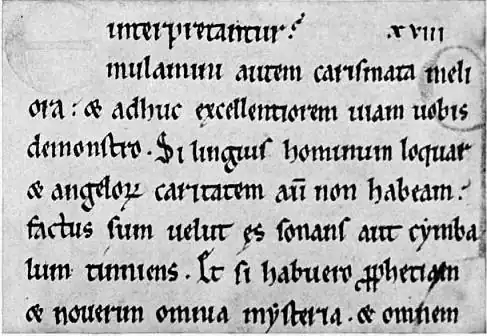 interpretantur? xviii
mulamini autem carismata meli
ora: & adhuc excellentiorem uiam uobis
demonſtro. Si linguis hominum loquar
& angeloꝝ caritatem aū non habeam:
factus ſum uelut ęs ſonans aut cymba
lum tinniens. Et ſi habuero ꝓphetiam
& nouerim omnia myſteria. & omnem